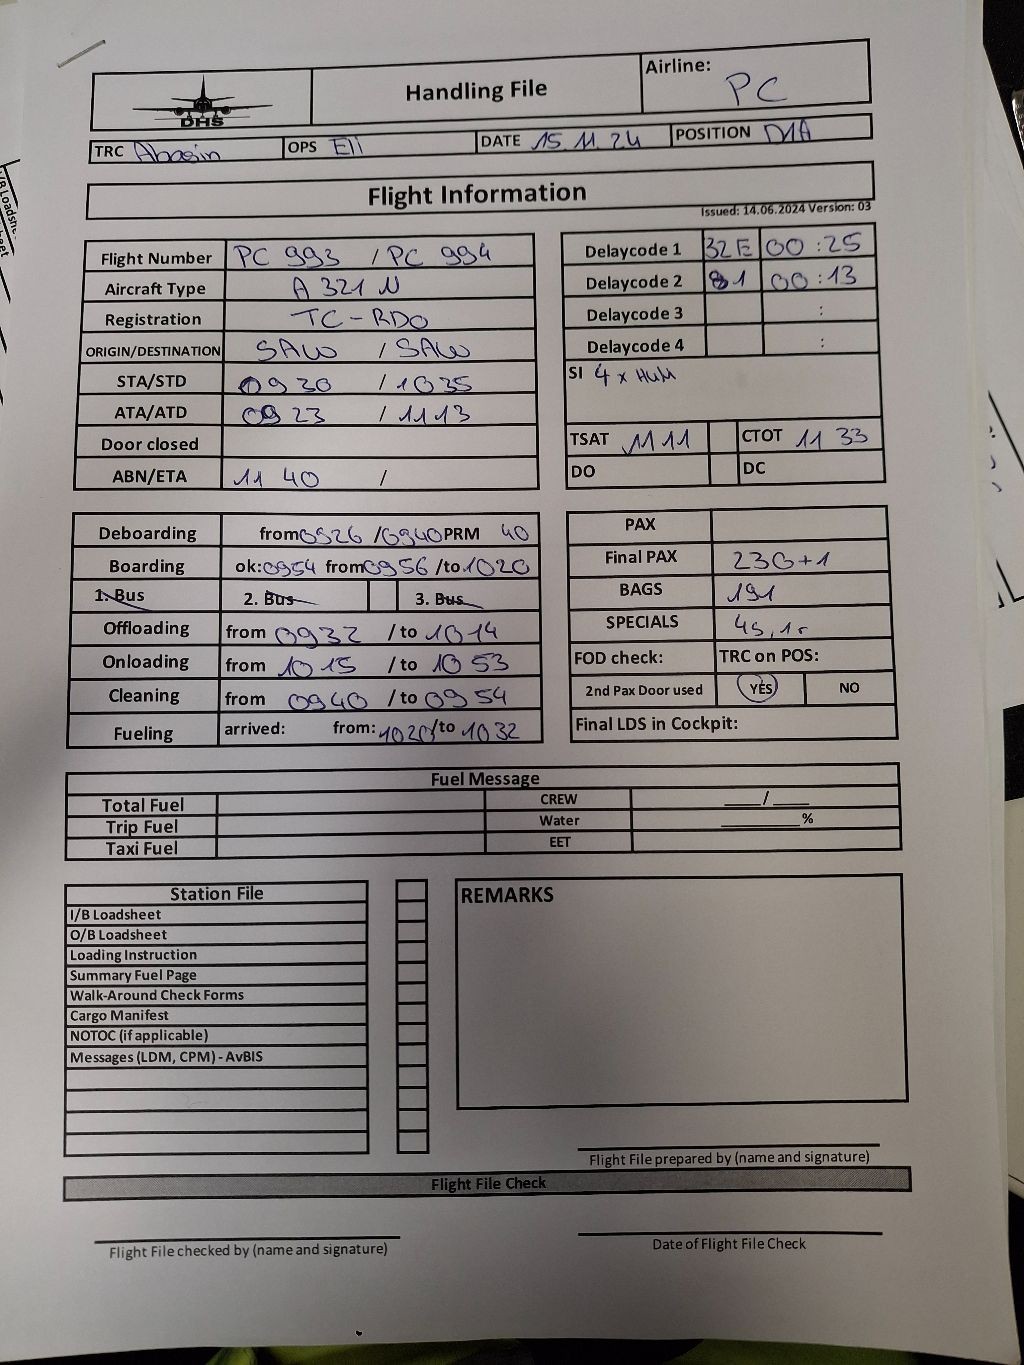 DHS
Handling File
Airline: PC
TRC Abasin OPS Ell DATE 15.11.24 POSITION D1A
Flight Information
Issued: 14.06.2024 Version: 03
Flight Number PC 993 / PC 994
Aircraft Type A 321 N
Registration TC-RDO
ORIGIN/DESTINATION SAW / SAW
STA/STD 0930 / 1035
ATA/ATD 0923 / 1113
Door closed
ABN/ETA 11 40 /
Delaycode 1 32E 00:25
Delaycode 2 81 00:13
Delaycode 3 :
Delaycode 4 :
SI 4 x HUM
TSAT 1111 CTOT 11 33
DO DC
Deboarding from 0926 / 0940 PRM 40
Boarding ok: 0954 from 0956 /to 1020
1. Bus 2. Bus 3. Bus
Offloading from 0932 / to 1014
Onloading from 1015 / to 1053
Cleaning from 0940 / to 0954
Fueling arrived: from: 1020 /to 1032
PAX
Final PAX 230+1
BAGS 191
SPECIALS
FOD check: TRC on POS:
2nd Pax Door used YES NO
Final LDS in Cockpit:
Fuel Message
Total Fuel CREW ____/____
Trip Fuel Water ________%
Taxi Fuel EET
Station File
I/B Loadsheet
O/B Loadsheet
Loading Instruction
Summary Fuel Page
Walk-Around Check Forms
Cargo Manifest
NOTOC (if applicable)
Messages (LDM, CPM) - AvBIS
REMARKS
Flight File prepared by (name and signature)
Flight File Check
Flight File checked by (name and signature)
Date of Flight File Check